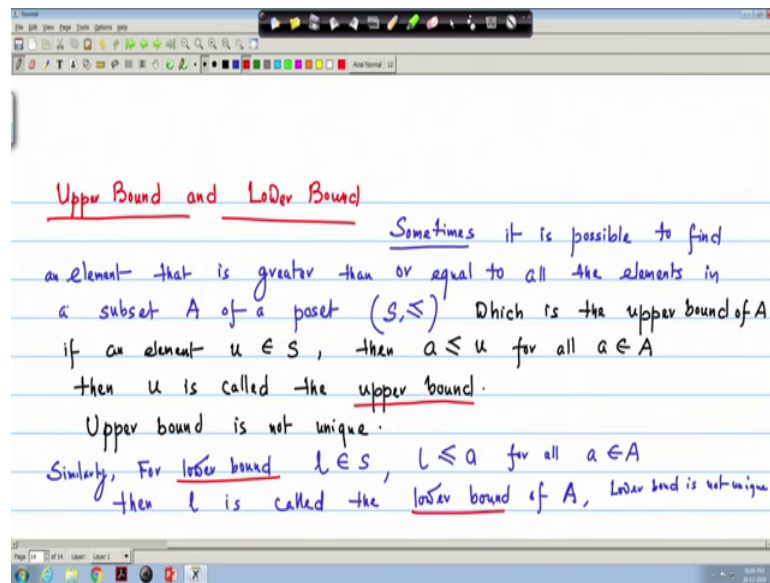 Journal
File Edit View Page Tools Options Help
Arial Normal 12
Upper Bound and Lower Bound
Sometimes it is possible to find
an element that is greater than or equal to all the elements in
a subset A of a poset (S, ≤) Which is the upper bound of A
if an element u ∈ S, then a ≤ u for all a ∈ A
then u is called the upper bound.
Upper bound is not unique.
Similarly, For lower bound l ∈ S, l ≤ a for all a ∈ A
then l is called the lower bound of A, Lower bond is not unique
Page 14 of 14 Layer: Layer 1